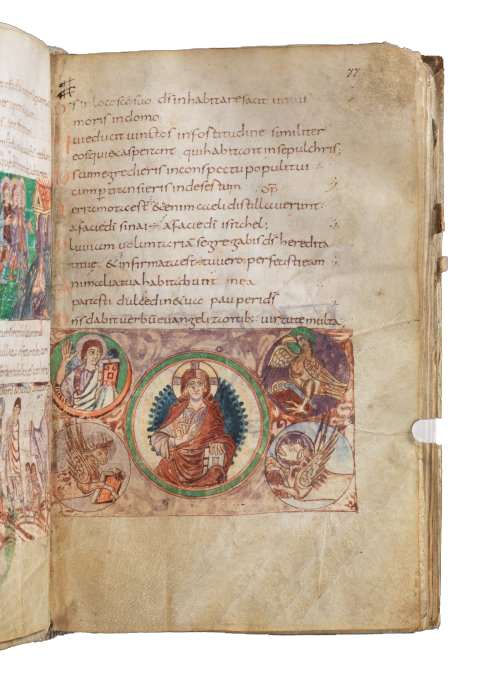 77
s in loco sco suo ds inhabitare facit unius
moris in domo
ui educit uinctos in fortitudine similiter
eos qui exasperant qui habitant in sepulchris;
s cum egredieris in conspectu populi tui
cum
erra mota est & enim caeli distillauerunt
a facie di sinai a facie di
luuiam uoluntariā segregabis ds heredita
& infirmata est tu uero perfecisti eam
nimalia tua habitabunt in ea
parasti pauperi ds
dns dabit uerbū euangelizantib; uirtute multa